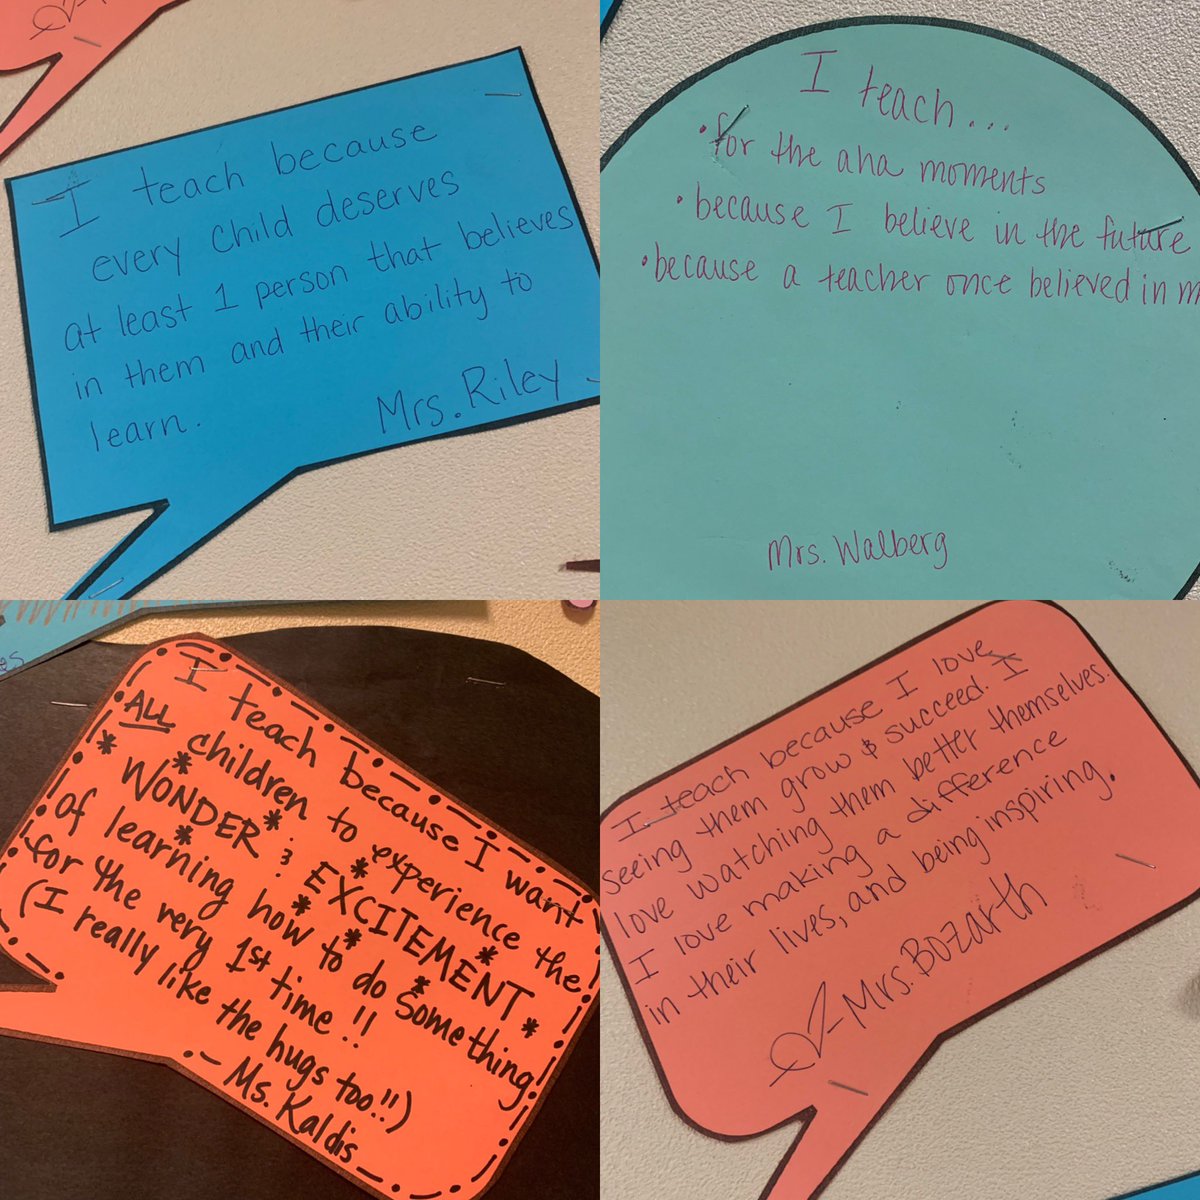 I teach because
every child deserves
at least 1 person that believes
in them and their ability to
learn.
Mrs. Riley
I teach...
• for the aha moments
• because I believe in the future
• because a teacher once believed in m
Mrs. Walberg
I teach because I want
ALL children to experience the
*WONDER* & *EXCITEMENT*
of learning how to do something
for the very 1st time!!
(I really like the hugs too!!)
- Ms. Kaldis
I teach because I love
seeing them grow & succeed. I
love watching them better themselves.
I love making a difference
in their lives, and being inspiring.
- Mrs. Bozarth